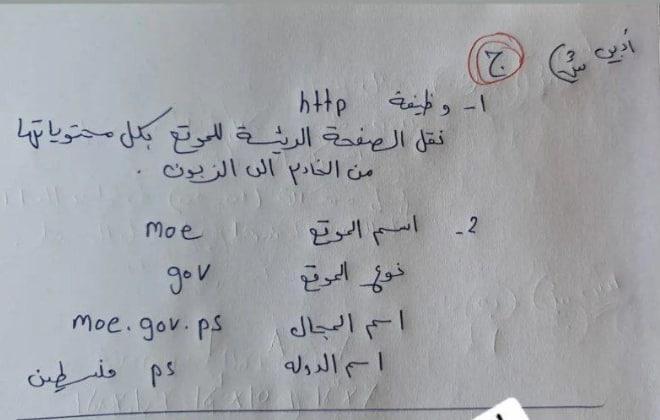 أدبي س3 ج
1- وظيفة http
نقل الصفحة الرئيسة للموقع بكل محتوياتها
من الخادم الى الزبون .
2- اسم الموقع moe
نوع الموقع gov
اسم المجال moe.gov.ps
اسم الدوله ps فلسطين